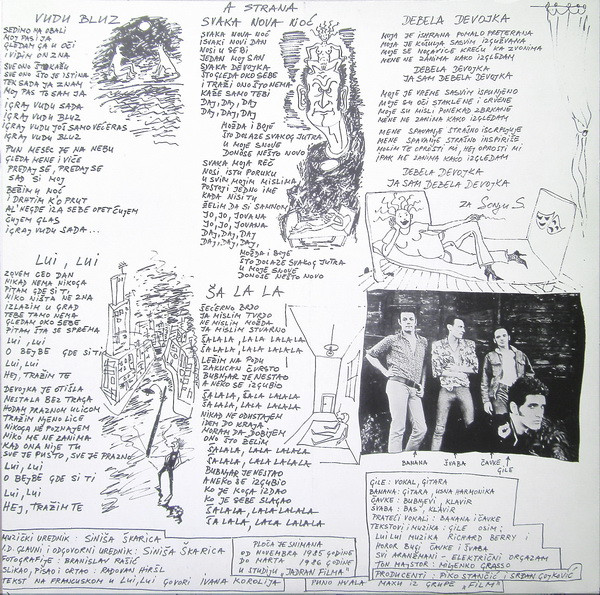 A STRANA
VUDU BLUZ
SEDIMO NA OBALI
MOJ PAS I JA
GLEDAM GA U OČI
I VIDIM ON ZNA
SVE ONO ŠTO KAŽU
SVE ONO ŠTO JE ISTINA
TEK SADA JA ZNAM
MOJ PAS TO SAM JA
IGRAJ VUDU SADA
IGRAJ VUDU BLUZ
IGRAJ VUDU JOŠ SAMO VEČERAS
IGRAJ VUDU BLUZ
PUN MESEC JE NA NEBU
GLEDA MENE I VIČE
PREDAJ SE, PREDAJ SE
SAD SI MOJ
BEŽIM U NOĆ
I DRHTIM K'O PRUT
AL' NEGDE IZA SEBE OPET ČUJEM
ČUJEM GLAS
IGRAJ VUDU SADA...
LUI, LUI
ZOVEM CEO DAN
NIKAD NEMA NIKOGA
PITAM GDE SI TI
NIKO NIŠTA NE ZNA
IZLAZIM U GRAD
TEBE TAMO NEMA
GLEDAM OKO SEBE
PITAM ŠTA JE SPREMA
LUI, LUI
O BEJBE GDE SI TI
LUI, LUI
HEJ, TRAŽIM TE
DEVOJKA JE OTIŠLA
NESTALA BEZ TRAGA
HODAM PRAZNOM ULICOM
TRAŽIM NJENO LICE
NIKOGA NE POZNAJEM
NIKO ME NE ZANIMA
KAD ONA NIJE TU
SVE JE PUSTO, SVE JE PRAZNO
LUI, LUI
O BEJBE GDE SI TI
LUI, LUI
HEJ, TRAŽIM TE
SVAKA NOVA NOĆ
SVAKA NOVA NOĆ
I SVAKI NOVI DAN
NOSI U SEBI
JEDAN MOJ SAN
SVAKA DEVOJKA
ŠTO GLEDA OKO SEBE
I TRAŽI ONO ŠTO NEMA
KAŽE SAMO TEBI
DAJ, DAJ, DAJ
DAJ, DAJ, DAJ
MOŽDA I BOJE
ŠTO DOLAZE SVAKOG JUTRA
U MOJE SNOVE
DONOSE NEŠTO NOVO
SVAKA MOJA REČ
NOSI ISTU PORUKU
U SVIM MOJIM MISLIMA
POSTOJI JEDNO IME
KADA NISI TU
ŽELIM DA SI SA MNOM
JO, JO, JOVANA
JO, JO, JOVANA
DAJ, DAJ, DAJ
DAJ, DAJ, DAJ,
MOŽDA I BOJE
ŠTO DOLAZE SVAKOG JUTRA
U MOJE SNOVE
DONOSE NEŠTO NOVO
ŠA LA LA
VEČERNO BRZO
JA MISLIM TVRDO
NE MISLIM MOŽDA
JA MISLIM STVARNO
ŠALALA, LALA LALALA
ŠALALA, LALA LALALA
LEŽIM NA PODU
ZAKUCAN ČVRSTO
BUBNJAR JE NESTAO
A NEKO SE IZGUBIO
ŠALALA, ŠALA LALALA
ŠALALA, LALA LALALA
NIKAD NE ODUSTAJEM
IDEM DO KRAJA
MORAM DA DOBIJEM
ONO ŠTO ŽELIM
ŠALALA, LALA LALALA
ŠALALA, LALA LALALA
BUBNJAR JE NESTAO
A NEKO SE IZGUBIO
KO JE KOGA IZDAO
KO JE SEBE SLAGAO
ŠALALA, LALA LALALA
ŠA LALA, LALA LALALA
DEBELA DEVOJKA
MOJA JE ISHRANA POMALO PRETERANA
MOJA JE KOŠULJA SASVIM IZGUŽVANA
MOJE SE NOGAVICE KREĆU NA ZVONIMA
MENE NE ZANIMA KAKO IZGLEDAM
DEBELA DEVOJKA
JA SAM DEBELA DEVOJKA
MOJE JE VREME SASVIM ISPUNJENO
MOJE SU OČI STAKLENE I CRVENE
MOJE SU MISLI PONEKAD ZBRKANE
MENE NE ZANIMA KAKO IZGLEDAM
MENE SPAVANJE STRAŠNO ISCRPLJUJE
MENE SPAVANJE STRAŠNO INSPIRIŠE
MOLIM TE OPROSTI MI, HEJ OPROSTI MI
IPAK NE ZANIMA KAKO IZGLEDAM
DEBELA DEVOJKA
JA SAM DEBELA DEVOJKA
ZA Sonju S.
BANANA ŠVABA ČAVKE GILE
GILE: VOKAL, GITARA
BANANA: GITARA, USNA HARMONIKA
ČAVKE: BUBNJEVI, KLAVIR
ŠVABA: BAS, KLAVIR
PRATEĆI VOKALI: BANANA I ČAVKE
TEKSTOVI I MUZIKA: GILE OSIM:
LUI LUI MUZIKA RICHARD BERRY I
HOROR BUGI ČAVKE I ŠVABA
SVI ARANŽMANI - ELEKTRIČNI ORGAZAM
TON MAJSTOR: MLADENKO GRASSO
PRODUCENTI: PIKO STANČIĆ I SRĐAN GOJKOVIĆ
MUZIČKI UREDNIK: SINIŠA ŠKARICA
GLAVNI I ODGOVORNI UREDNIK: SINIŠA ŠKARICA
FOTOGRAFIJE: BRANISLAV RAŠIĆ
SLIKAO, PISAO I CRTAO: RADOVAN HIRŠL
TEKST NA FRANCUSKOM U LUI, LUI GOVORI IVANA KOROLIJA
PLOČA JE SNIMANA
OD NOVEMBRA 1985 GODINE
DO MARTA 1986 GODINE
U STUDIJU „JADRAN FILMA"
PUNO HVALA MAXU IZ GRUPE „FILM"